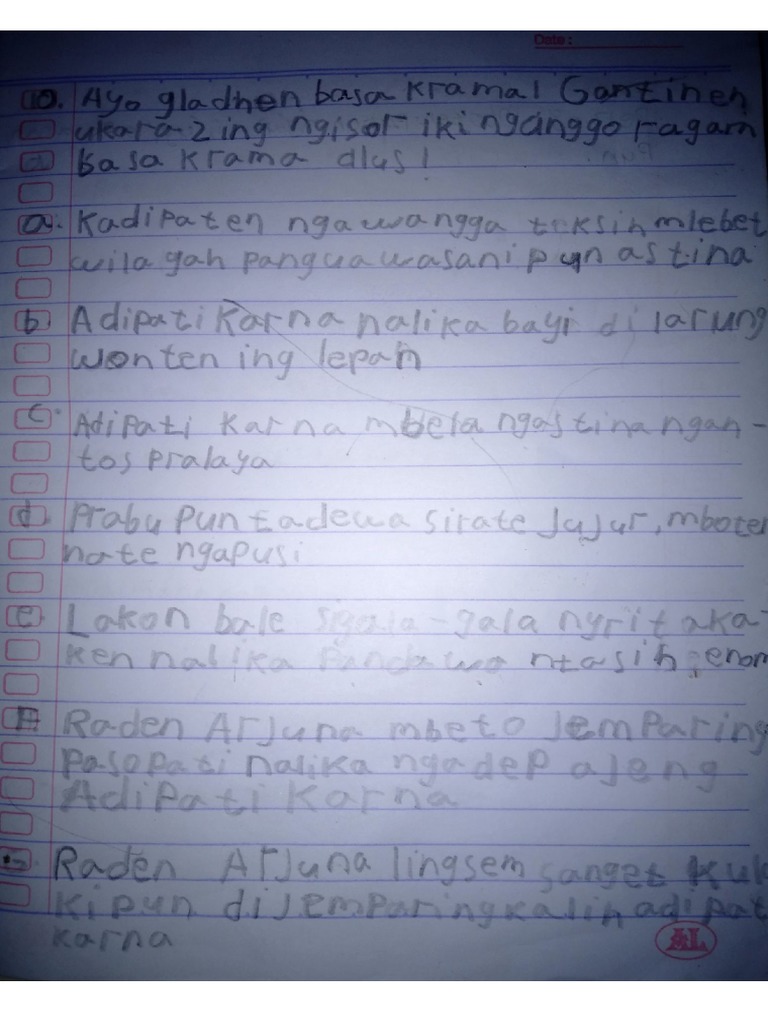 Date:
10. Ayo gladhen basa krama! Gantinen
ukara-2 ing ngisor iki nganggo ragam
basa krama alus!
a. Kadipaten ngawangga teksih mlebet
wilayah panguawasanipun astina
b. Adipati Karna nalika bayi di larung
wonten ing lepan
c. Adipati Karna mbela ngastina ngan-
tos pralaya
d. Prabu Puntadewa sirate Jujur, mboten
nate ngapusi
e. Lakon bale sigala-gala nyritaka-
ken nalika Pandawa ntasih enom
Raden Arjuna mbeto Jemparing
Pasopati nalika ngadep ajeng
Adipati Karna
Raden Arjuna lingsem sanget kul
kipun diJemparing kalih adipat
karna
AL